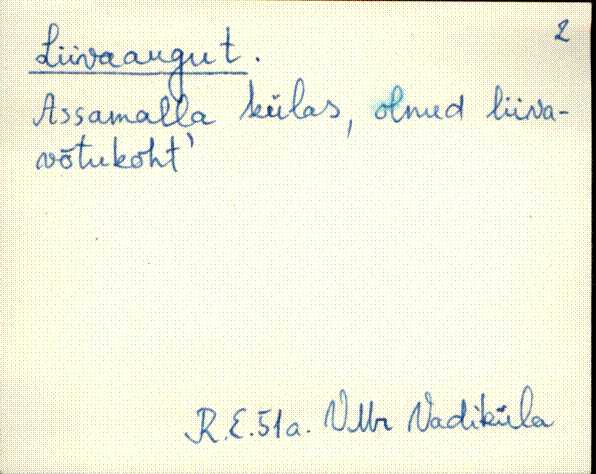 2
Liivaaugut.
Assamalla külas, olnud liiva-
võtukoht'
R.E.51a. VMr Vadiküla